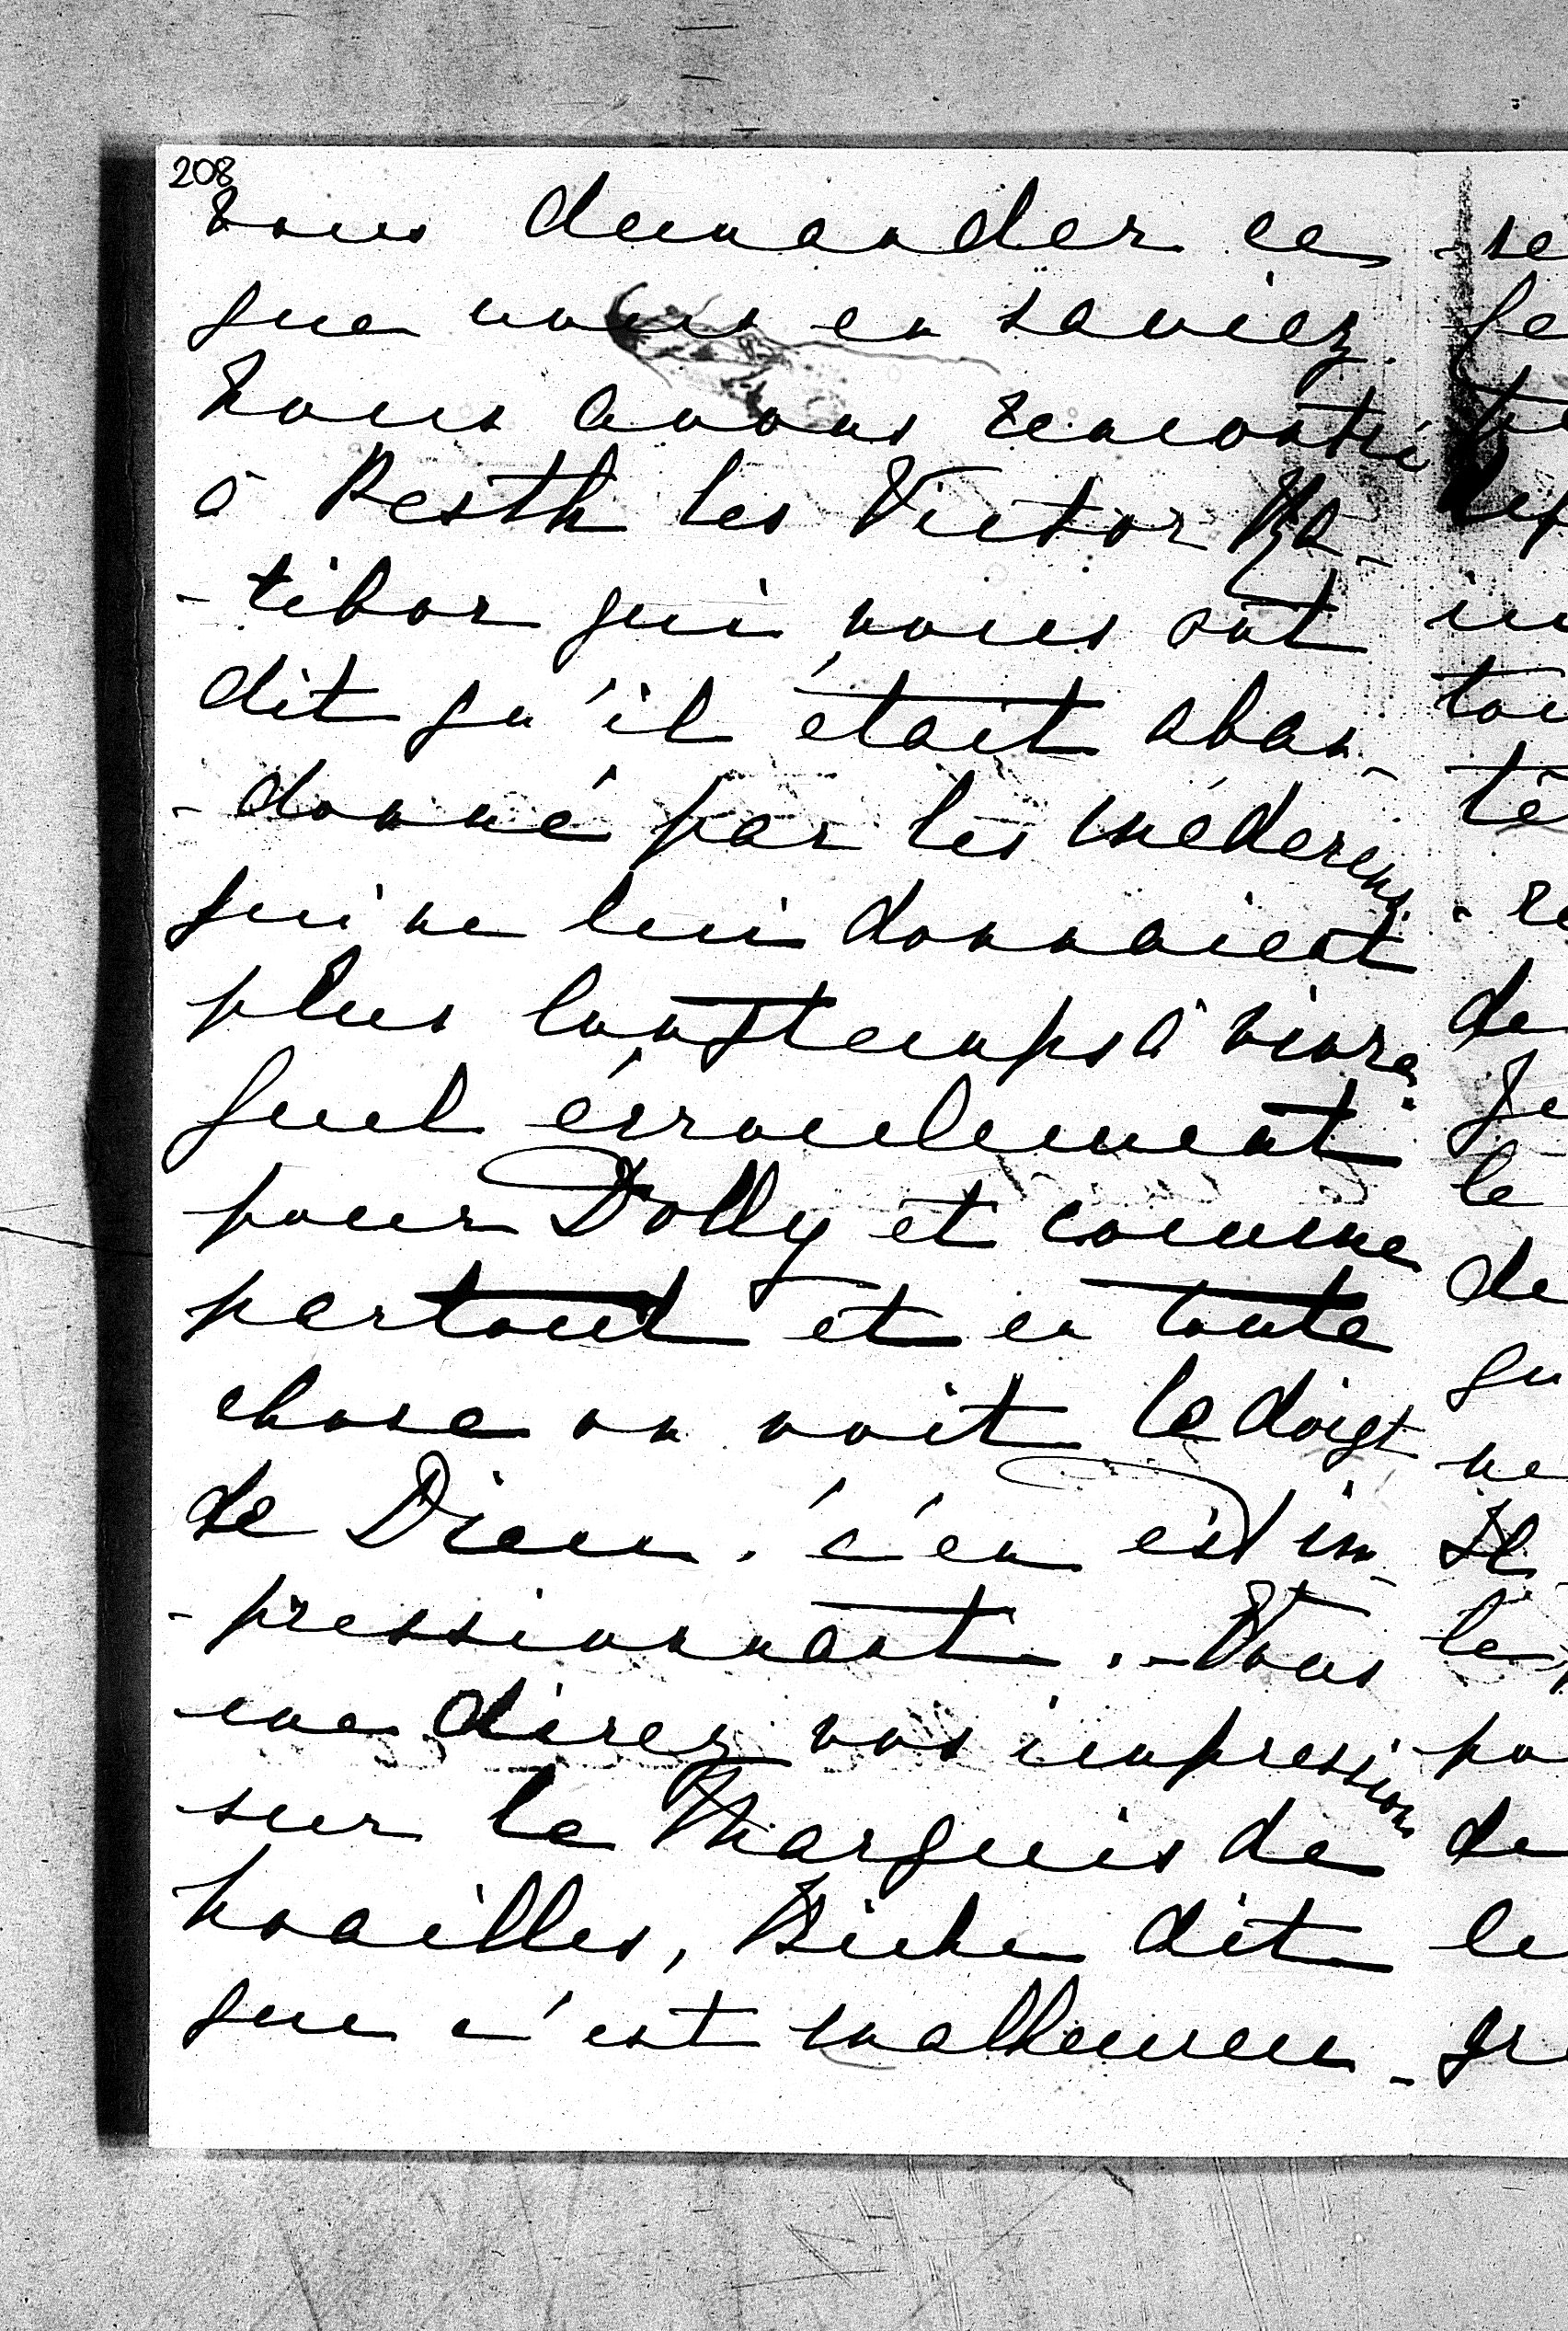 208
vous demander ce
que vous en saviez.
Nous avons rencontré
à Pesth les Victor Ra-
-tibor qui nous ont
dit qu'il était aban-
-donné par les médecins
qui ne lui donnaient
plus longtemps à vivre.
Quel écroulement
pour Dolly et comme
partout et en toute
chose on voit le doigt
de Dieu. c'en est im-
-pressionnant. - Vous
me direz vos impressions
sur le Marquis de
Noailles, Biche dit
que c'est malheureu-